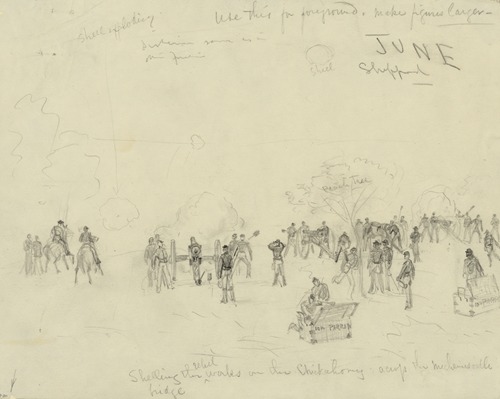 Shell exploding
Use this for foreground. make figures larger
Distance same as in
JUNE
Sheppard
Shell
peach tree
Shelling the rebel works on the Chickahominy: across the Mechanicsville
bridge